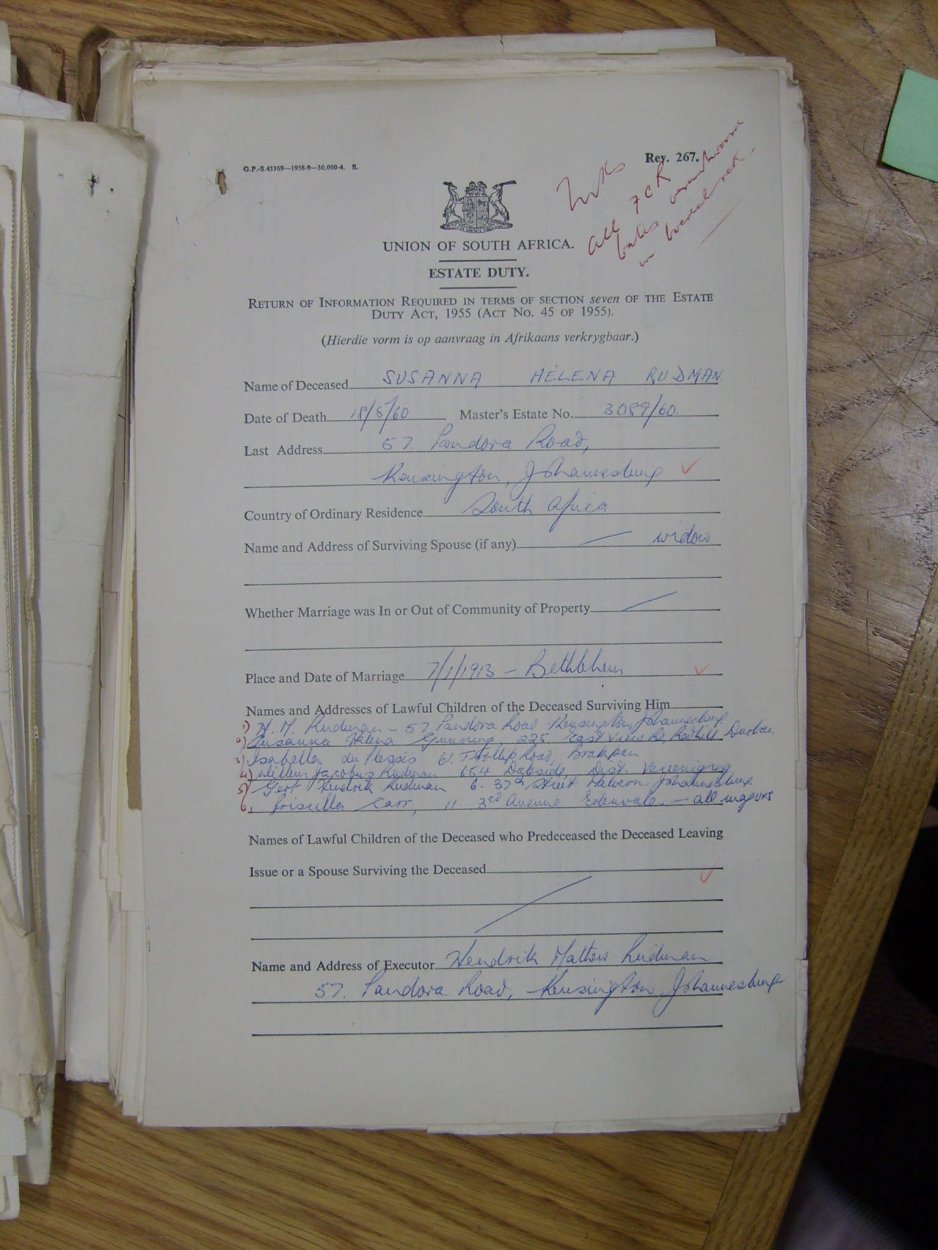 G.P.-S.43369—1958-9—30,000-4. S.
Rev. 267.
all
in
UNION OF SOUTH AFRICA.
ESTATE DUTY.
RETURN OF INFORMATION REQUIRED IN TERMS OF SECTION seven OF THE ESTATE
DUTY ACT, 1955 (ACT NO. 45 OF 1955).
(Hierdie vorm is op aanvraag in Afrikaans verkrygbaar.)
Name of Deceased SUSANNA HELENA RUDMAN
Date of Death 18/5/60 Master's Estate No. 3089/60.
Last Address 57. Pandora Road,
Kensington, Johannesburg
Country of Ordinary Residence South Africa
Name and Address of Surviving Spouse (if any) — widow
Whether Marriage was In or Out of Community of Property
Place and Date of Marriage 7/1/1913 - Bethlehem
Names and Addresses of Lawful Children of the Deceased Surviving Him
1) H. M. Rudman - 57 Pandora Road Kensington, Johannesburg
2) Susanna Helena 225 East View Rd, Redhill Durban
3) Isabella du Plessis 61. Road, Brakpan
4) Willem Jacobus Rudman 654 Dist. Vereeniging
5) Gert Hendrik Rudman 6. 37th Street Johannesburg
6, Priscilla Carr, 11 3rd Avenue Edenvale. - all majors
Names of Lawful Children of the Deceased who Predeceased the Deceased Leaving
Issue or a Spouse Surviving the Deceased
Name and Address of Executor Hendrik Mathys Rudman
57. Pandora Road, Kensington, Johannesburg